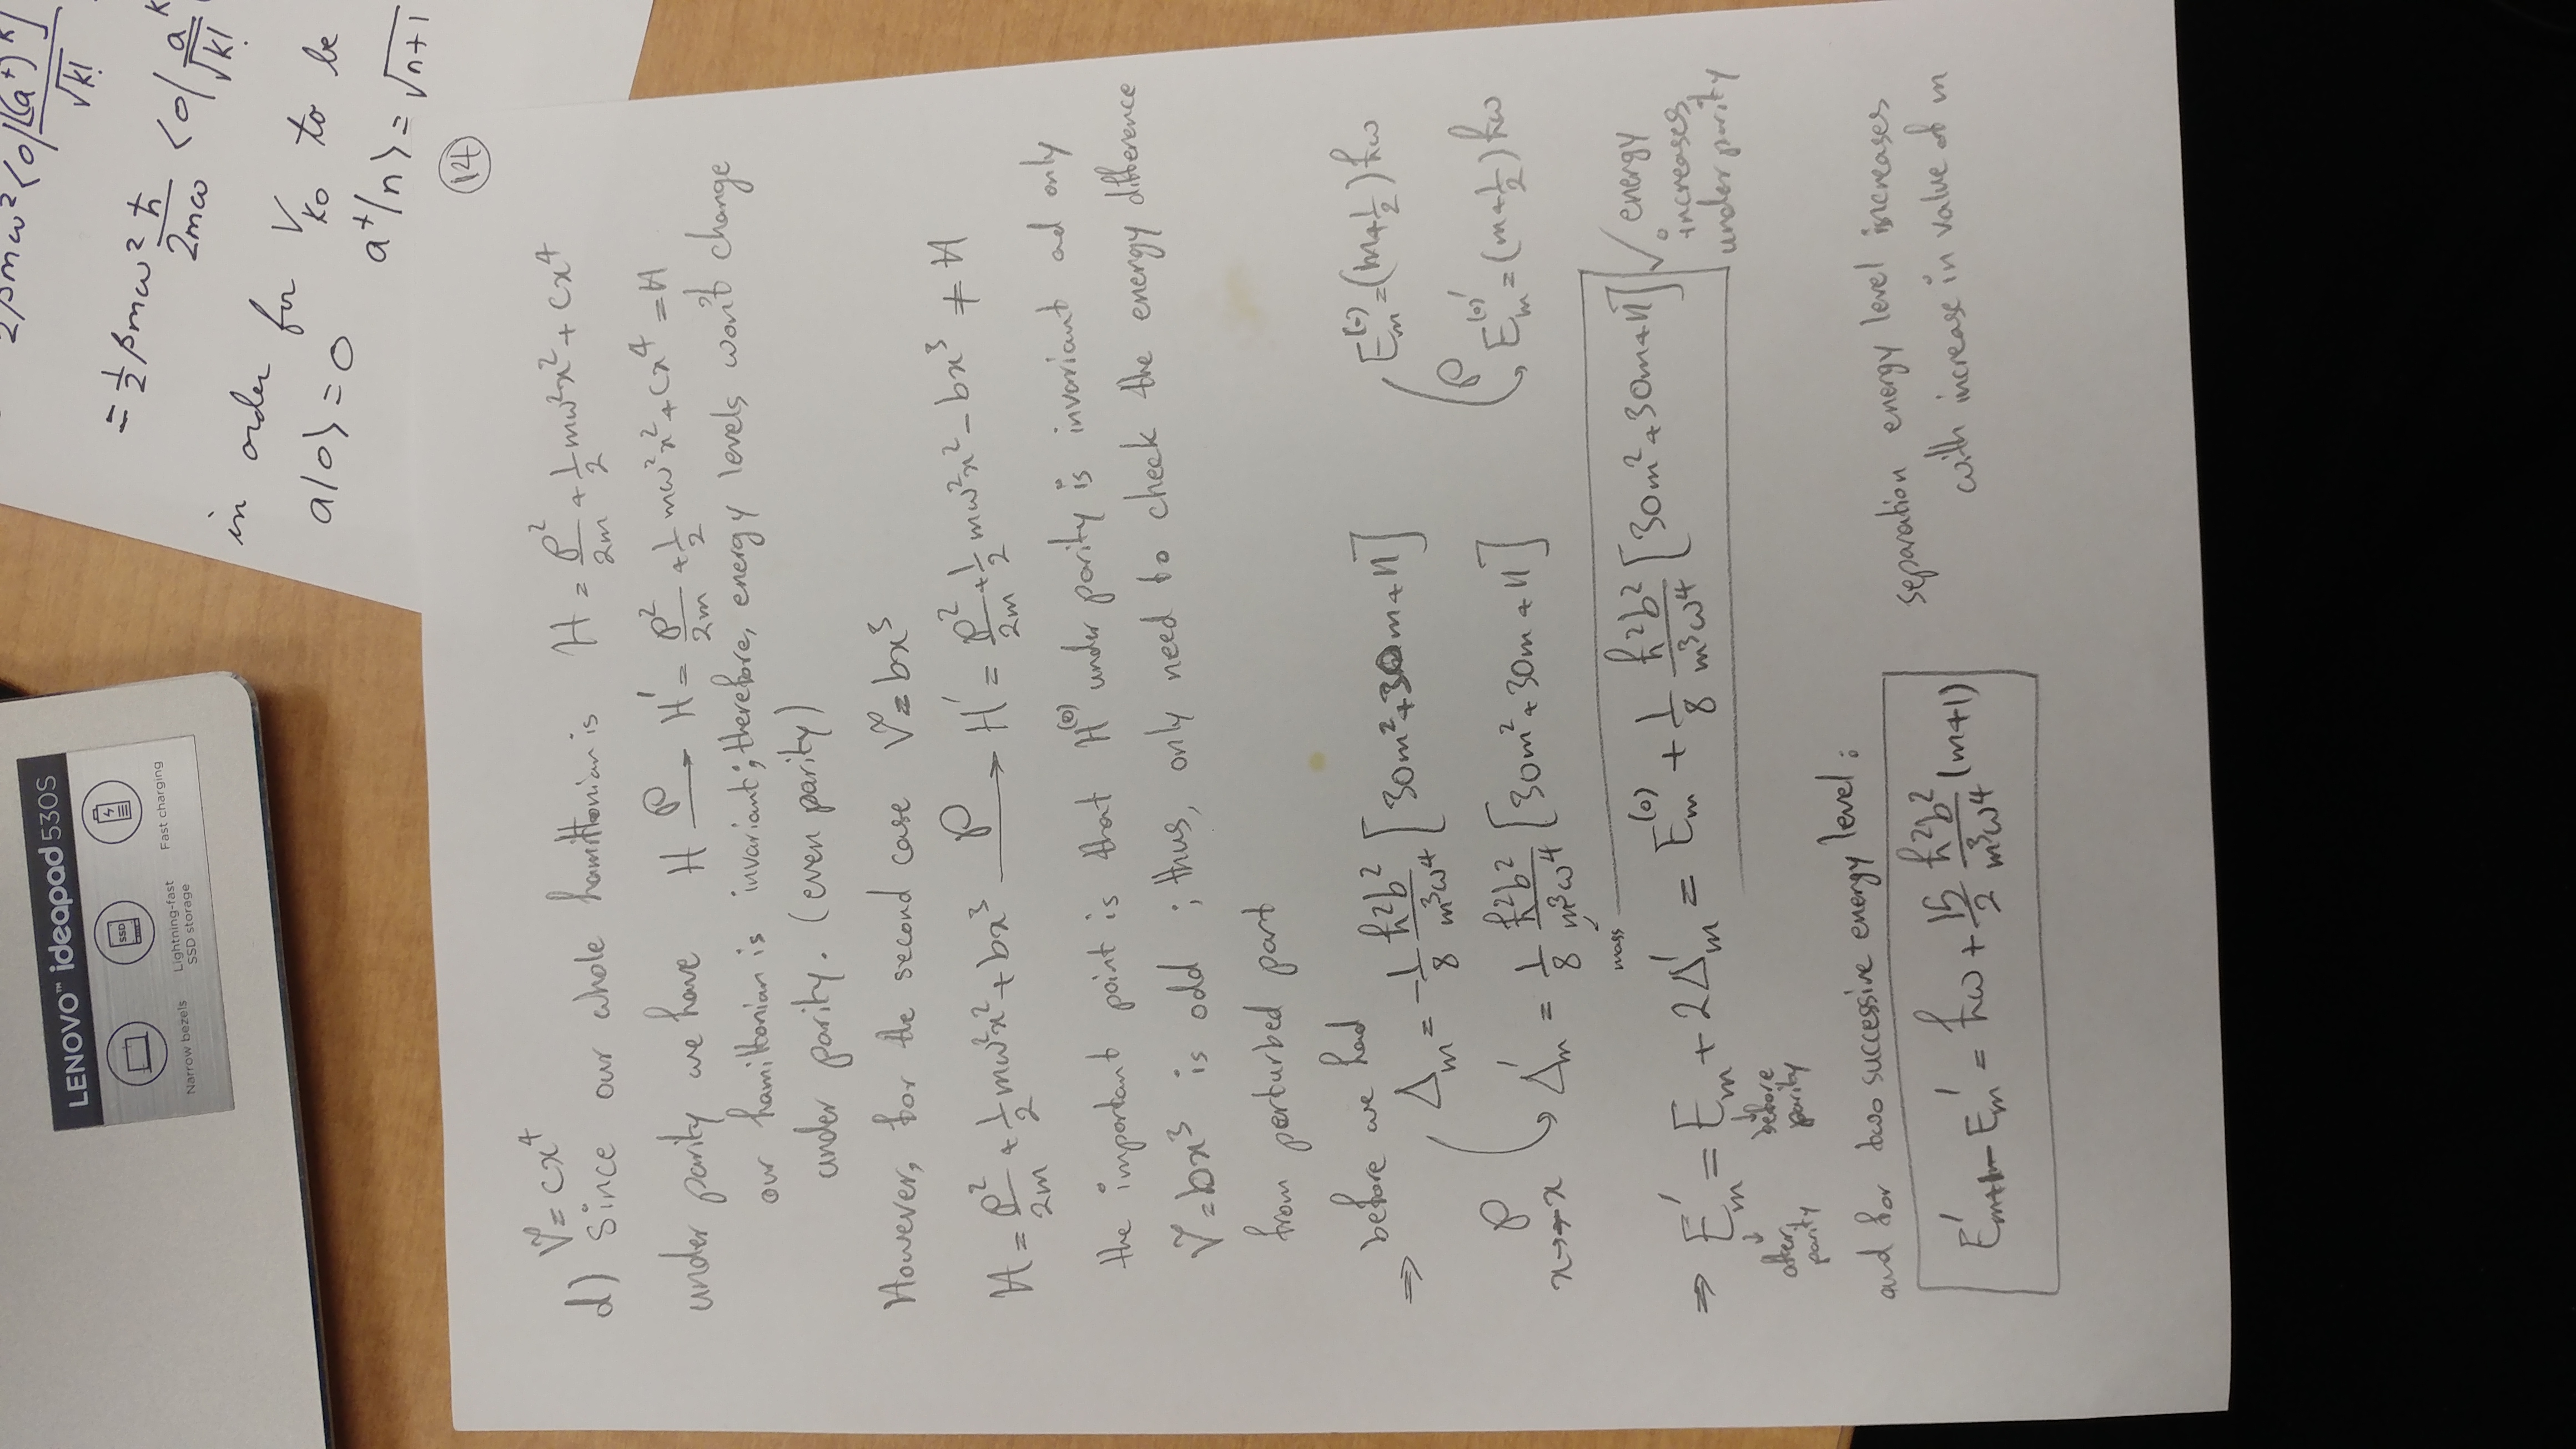 LENOVO™ ideapad 530S
SSD
Narrow bezels
Lightning-fast
SSD storage
Fast charging
2βmω² <0|[(a⁺)ᵏ]
√k!
= 1/2 βmω² ħ/2mω <0| aᵏ/√k!
in order for V_k0 to be
a|0> = 0
a⁺|n> = √n+1
14
Ṽ = cx⁴
d) Since our whole hamiltonian is H = P²/2m + 1/2 mω²x² + cx⁴
under parity we have H —P→ H' = P²/2m + 1/2 mω²x² + cx⁴ = H
our hamiltonian is invariant; therefore, energy levels won't change
under parity. (even parity)
However, for the second case Ṽ = bx³
H = P²/2m + 1/2 mω²x² + bx³ —P→ H' = P²/2m + 1/2 mω²x² - bx³ ≠ H
the important point is that H⁽⁰⁾ under parity is invariant ad only
Ṽ = bx³ is odd ; thus, only need to check the energy difference
from perturbed part
before we had
⇒ Δm = -1/8 ħ²b²/m³ω⁴ [30m² + 30m + 11]
Em⁽⁰⁾ = (m + 1/2) ħω
P
x → -x
Δ'm = 1/8 ħ²b²/m³ω⁴ [30m² + 30m + 11]
P
Em⁽⁰⁾' = (m + 1/2) ħω
mass
⇒ E'm = Em + 2Δ'm = Em⁽⁰⁾ + 1/8 ħ²b²/m³ω⁴ [30m² + 30m + 11] ✓
energy
increases
under parity
after
parity
before
parity
and for two successive energy level:
E'm+1 - E'm = ħω + 15/2 ħ²b²/m³ω⁴ (m+1)
separation energy level increases
with increase in value of m